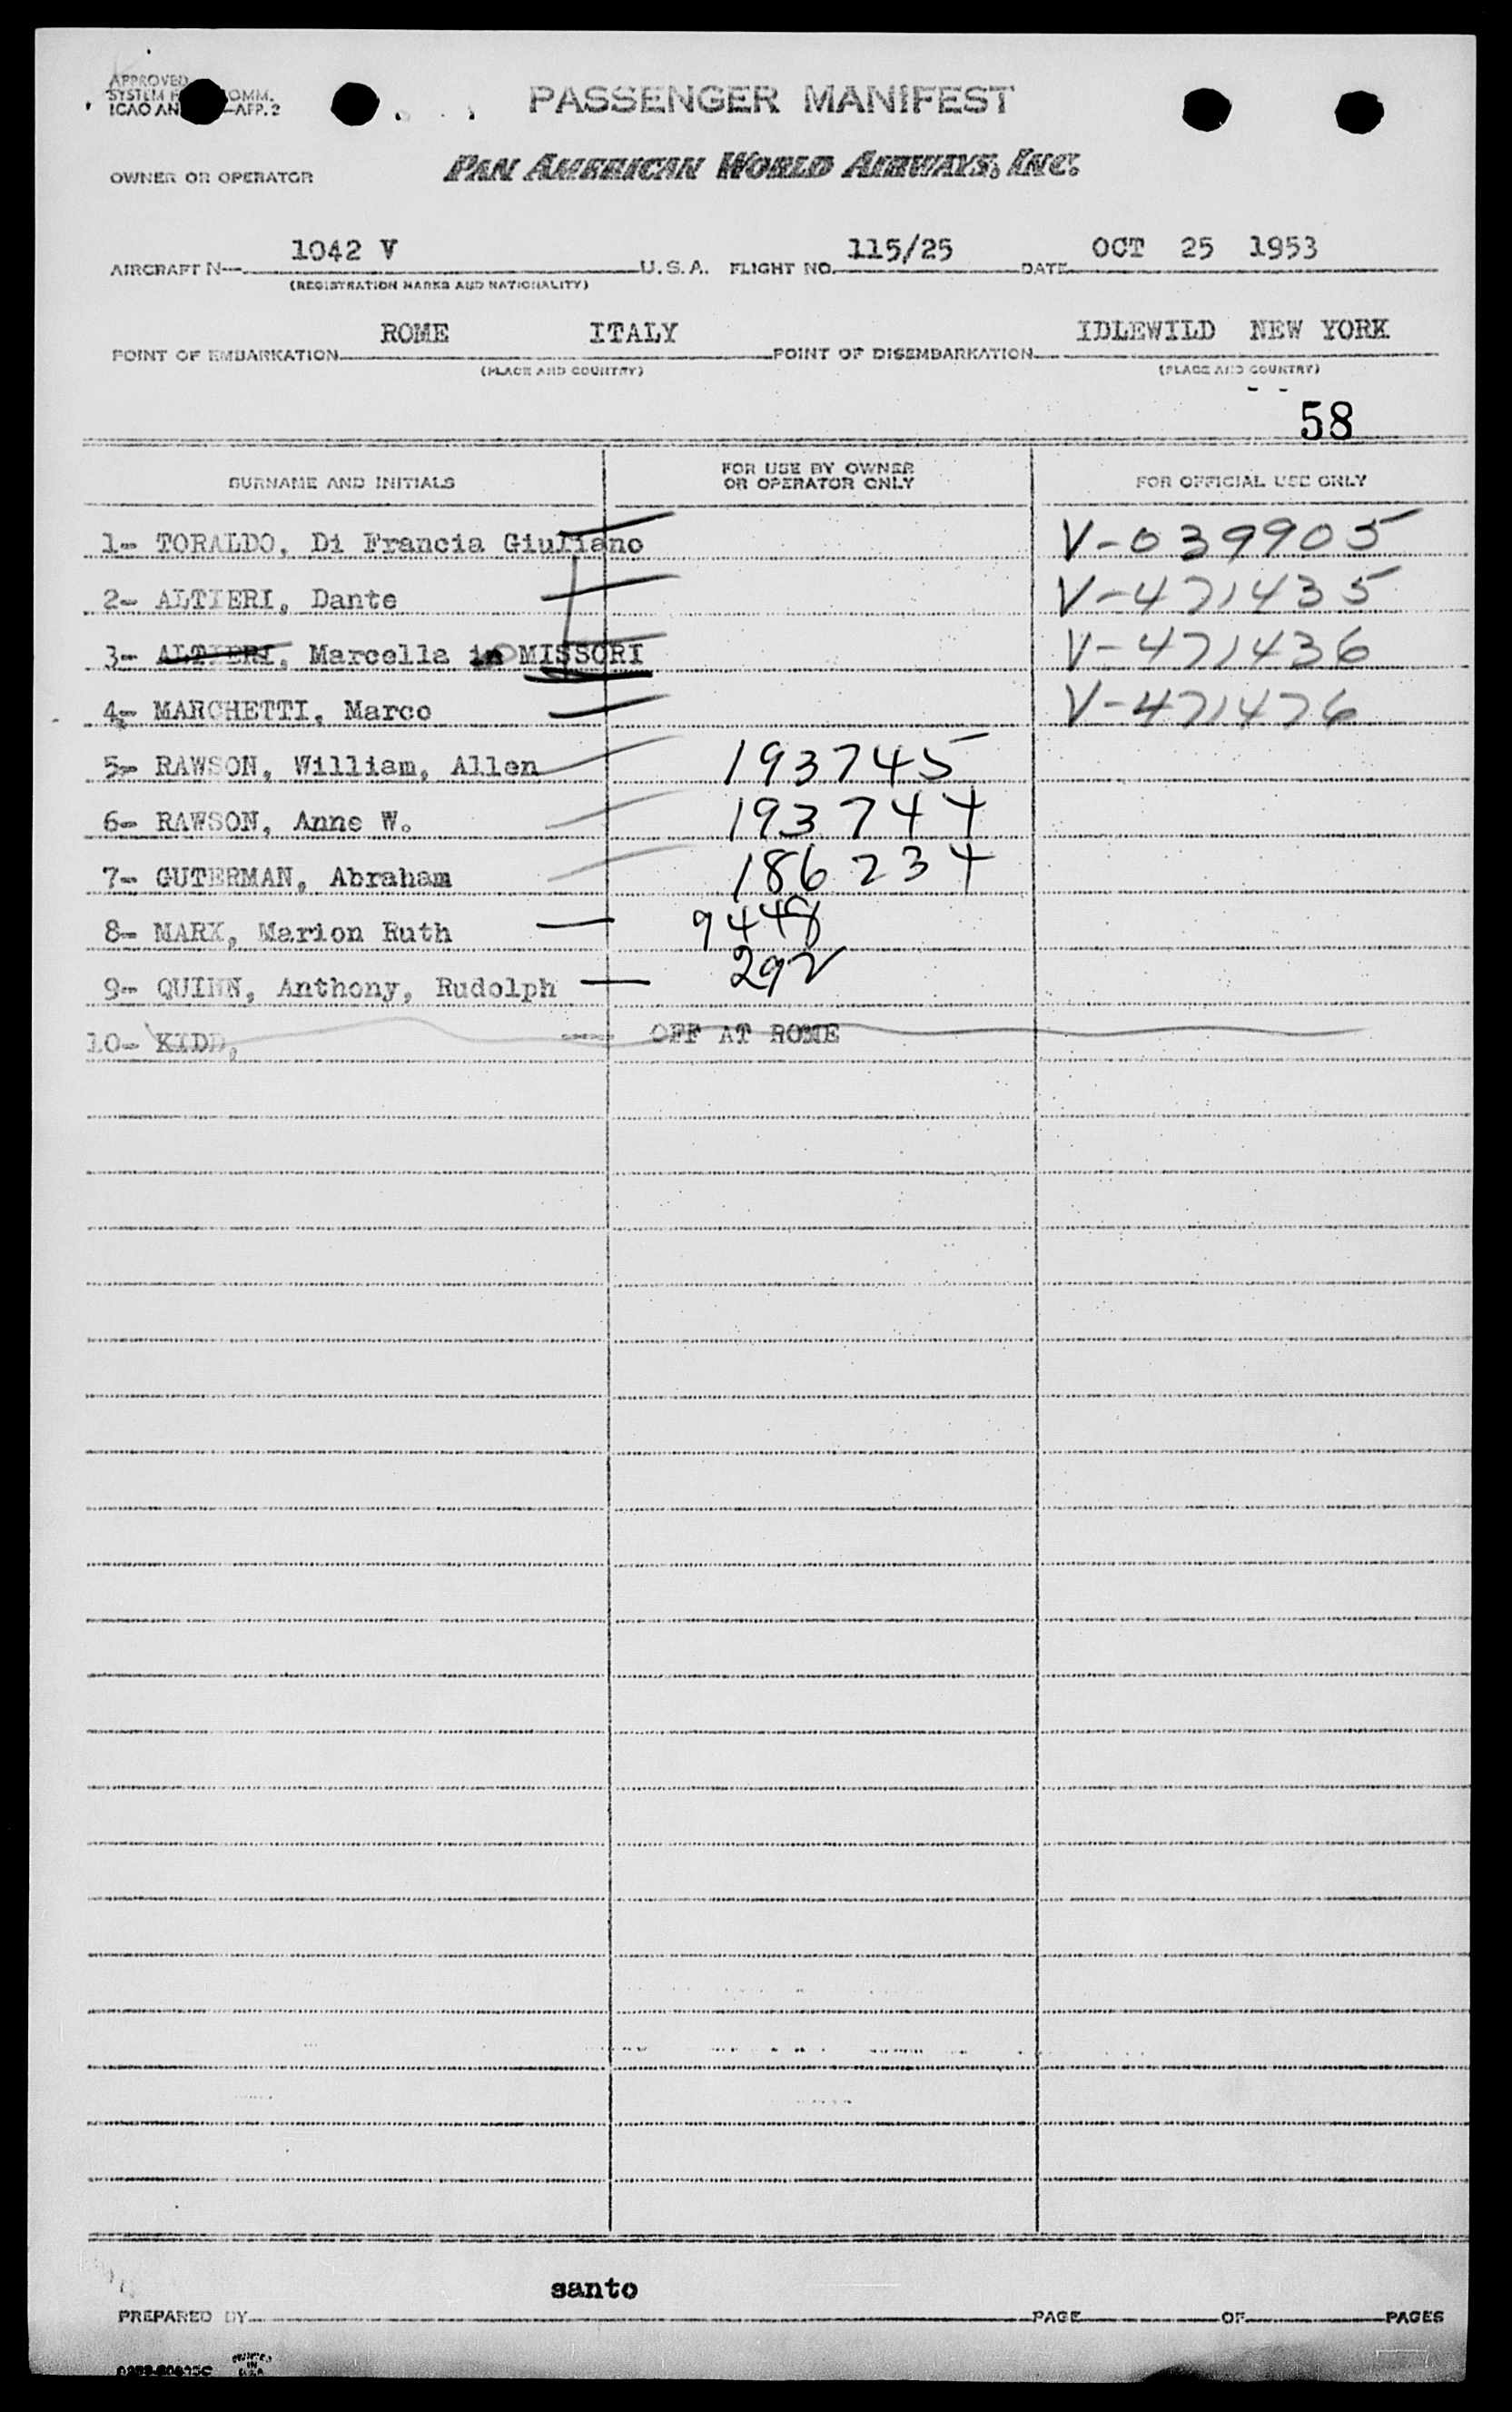 APPROVED
SYSTEM OMM.
ICAO AN —AFP. 2
PASSENGER MANIFEST
OWNER OR OPERATOR
PAN AMERICAN WORLD AIRWAYS, INC.
AIRCRAFT N— 1042 V U. S. A. FLIGHT NO. 115/25 DATE OCT 25 1953
(REGISTRATION MARKS AND NATIONALITY)
POINT OF EMBARKATION ROME ITALY POINT OF DISEMBARKATION IDLEWILD NEW YORK
(PLACE AND COUNTRY) (PLACE AND COUNTRY)
58
SURNAME AND INITIALS FOR USE BY OWNER OR OPERATOR ONLY FOR OFFICIAL USE ONLY
1- TORALDO, Di Francia Giuliano V-039905
2- ALTIERI, Dante V-471435
3- ALTIERI, Marcella in MISSORI V-471436
4- MARCHETTI, Marco V-471476
5- RAWSON, William, Allen 193745
6- RAWSON, Anne W. 193744
7- GUTERMAN, Abraham 186234
8- MARX, Marion Ruth 9448
9- QUINN, Anthony, Rudolph 292
10- KIDD, ---- OFF AT ROME
santo
PREPARED BY PAGE OF PAGES
PRINTED
IN
U.S.A.